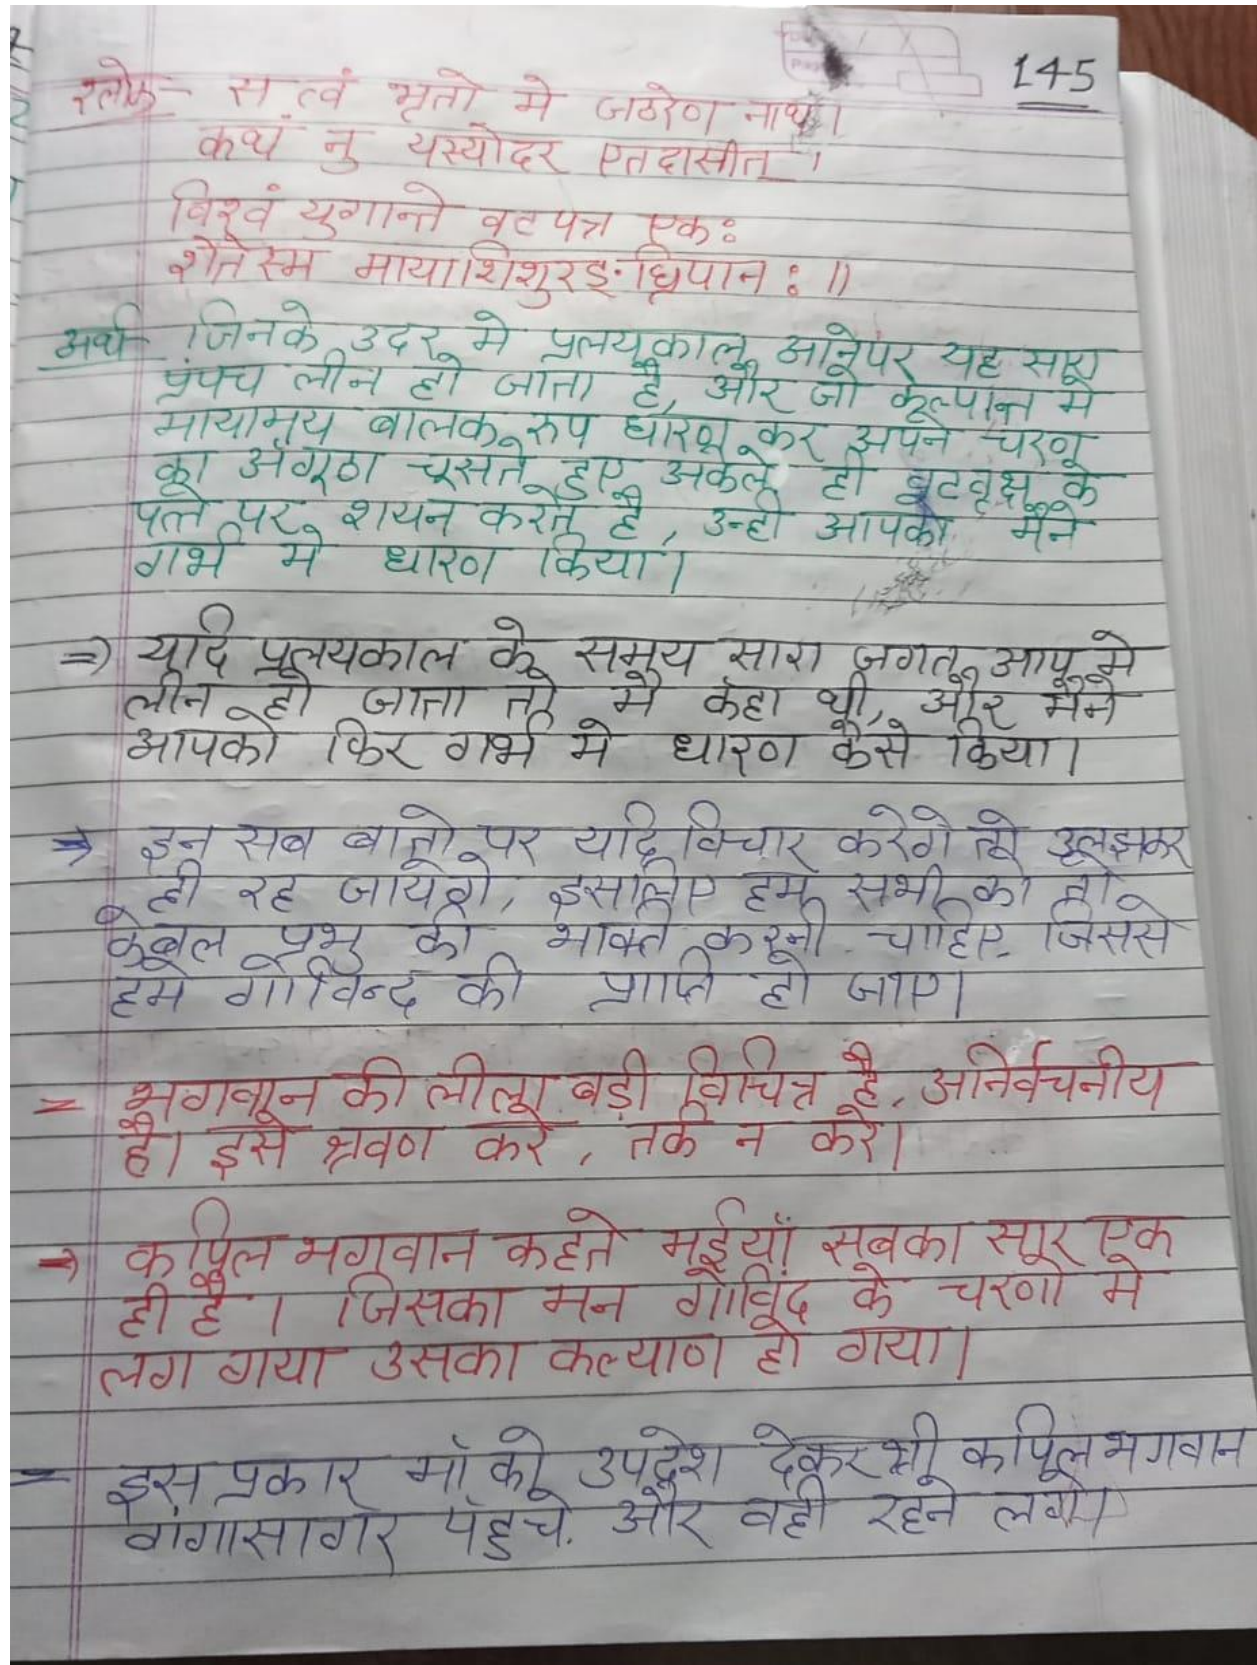 145
श्लोक- स त्वं भृतो मे जठरेण नाथ।
कथं नु यस्योदर एतदासीत्।
विश्वं युगान्ते वटपत्र एकः
शेतेस्म मायाशिशुरङ्घ्रिपानः॥
अर्थ- जिनके उदर मे प्रलयकाल आनेपर यह सारा
प्रंपच लीन हो जाता है, और जो कल्पान्त मे
मायामय बालक रुप धारण कर अपने चरण
का अँगूठा चूसते हुए अकेले ही वटवृक्ष के
पत्ते पर शयन करते है, उन्ही आपको मैने
गर्भ मे धारण किया।
=) यदि प्रलयकाल के समय सारा जगत आप मे
लीन हो जाता तो मै कँहा थी, और मैने
आपको फिर गर्भ मे धारण कैसे किया।
→ इन सब बातो पर यदि विचार करेगे तो उलझकर
ही रह जायेगे, इसलिए हम सभी को तो
केबल प्रभु की भक्ति करनी चाहिए जिससे
हमे गोविन्द की प्राप्ति हो जाए।
= भगवान की लीला बड़ी विचित्र है, अनिर्वचनीय
है। इसे श्रवण करे, तर्क न करे।
→ कपिल भगवान कहते मईयाँ सबका सार एक
ही है। जिसका मन गोविंद के चरणो मे
लग गया उसका कल्याण हो गया।
- इस प्रकार माँ को उपदेश देकर श्री कपिल भगवान
गंगासागर पँहुचे. और वही रहने लगे।